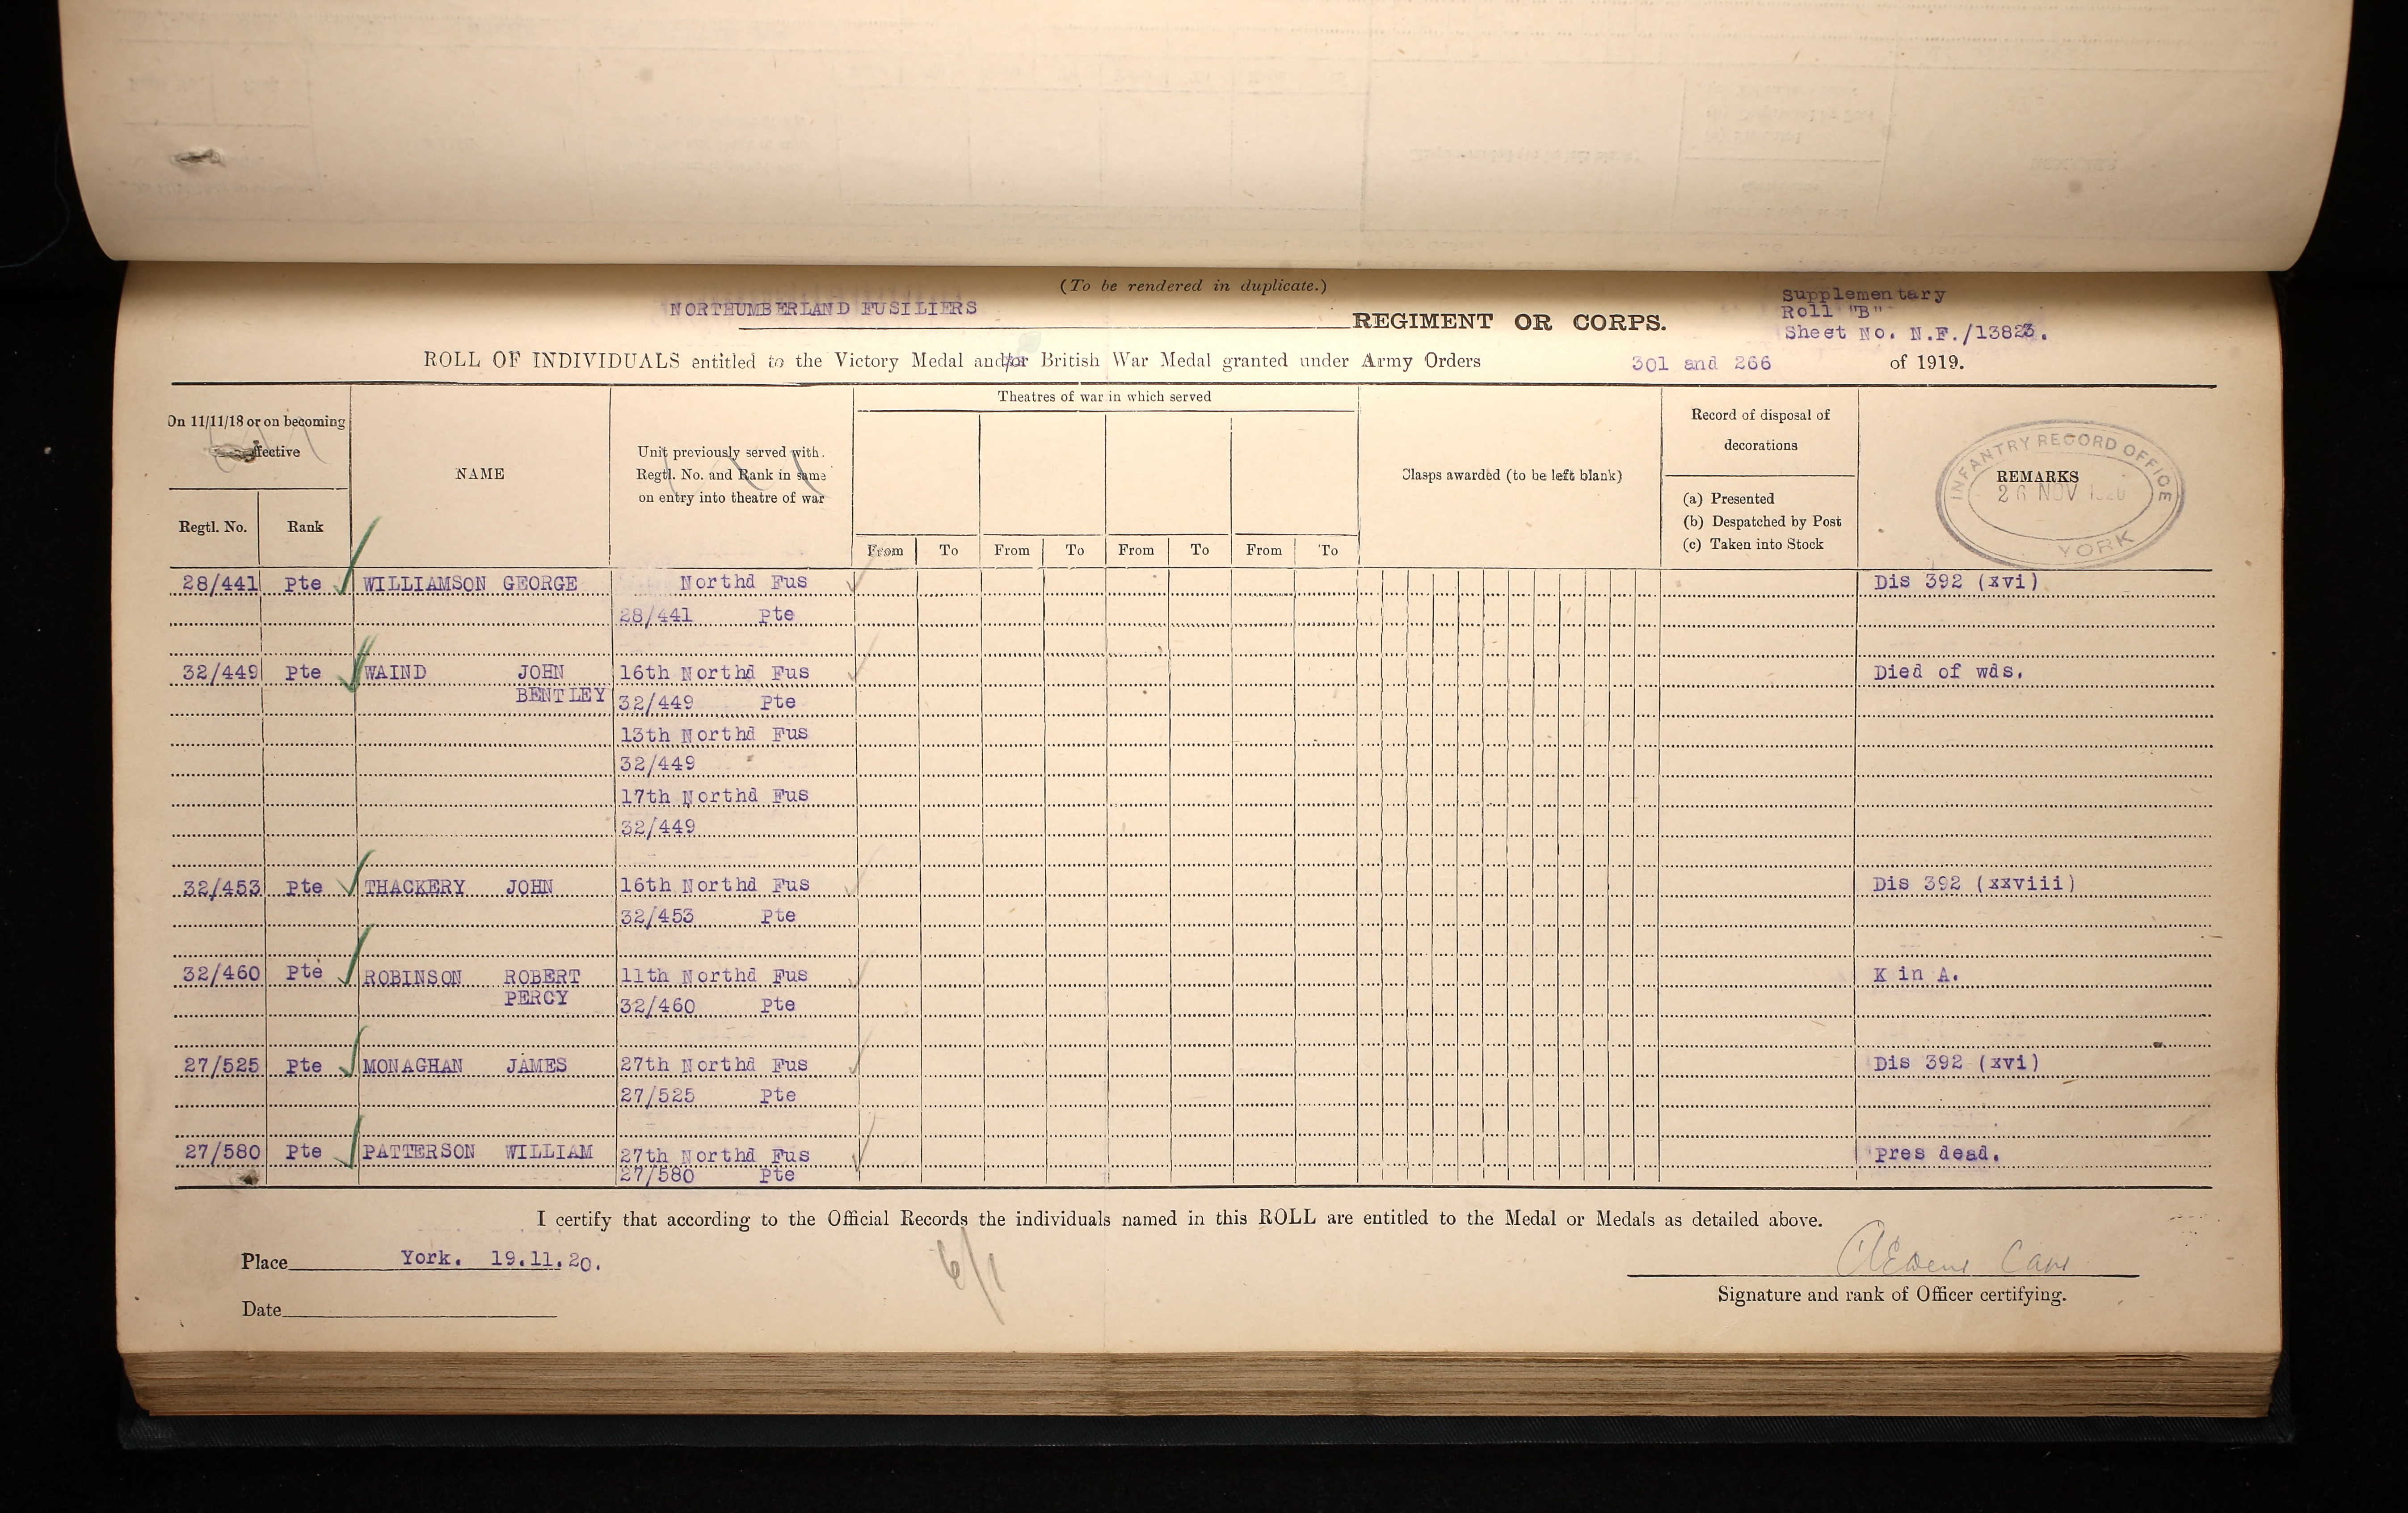 (To be rendered in duplicate.)
NORTHUMBERLAND FUSILIERS REGIMENT OR CORPS.
Supplementary
Roll "B"
Sheet No. N.F./13823.
ROLL OF INDIVIDUALS entitled to the Victory Medal and/or British War Medal granted under Army Orders 301 and 266 of 1919.
On 11/11/18 or on becoming
Regtl. No.
Rank
NAME
Unit previously served with.
Regtl. No. and Rank in same
on entry into theatre of war
Theatres of war in which served
From To From To From To From To
Clasps awarded (to be left blank)
Record of disposal of
decorations
(a) Presented
(b) Despatched by Post
(c) Taken into Stock
REMARKS
INFANTRY RECORD OFFICE
26 NOV 1920
YORK
28/441 Pte WILLIAMSON GEORGE Northd Fus Dis 392 (xvi)
28/441 Pte
32/449 Pte WAIND JOHN 16th Northd Fus Died of wds.
BENTLEY 32/449 Pte
13th Northd Fus
32/449
17th Northd Fus
32/449
32/453 Pte THACKERY JOHN 16th Northd Fus Dis 392 (xxviii)
32/453 Pte
32/460 Pte ROBINSON ROBERT 11th Northd Fus K in A.
PERCY 32/460 Pte
27/525 Pte MONAGHAN JAMES 27th Northd Fus Dis 392 (xvi)
27/525 Pte
27/580 Pte PATTERSON WILLIAM 27th Northd Fus pres dead.
27/580 Pte
I certify that according to the Official Records the individuals named in this ROLL are entitled to the Medal or Medals as detailed above.
Place York. 19.11.20.
6/1
Date
Signature and rank of Officer certifying.